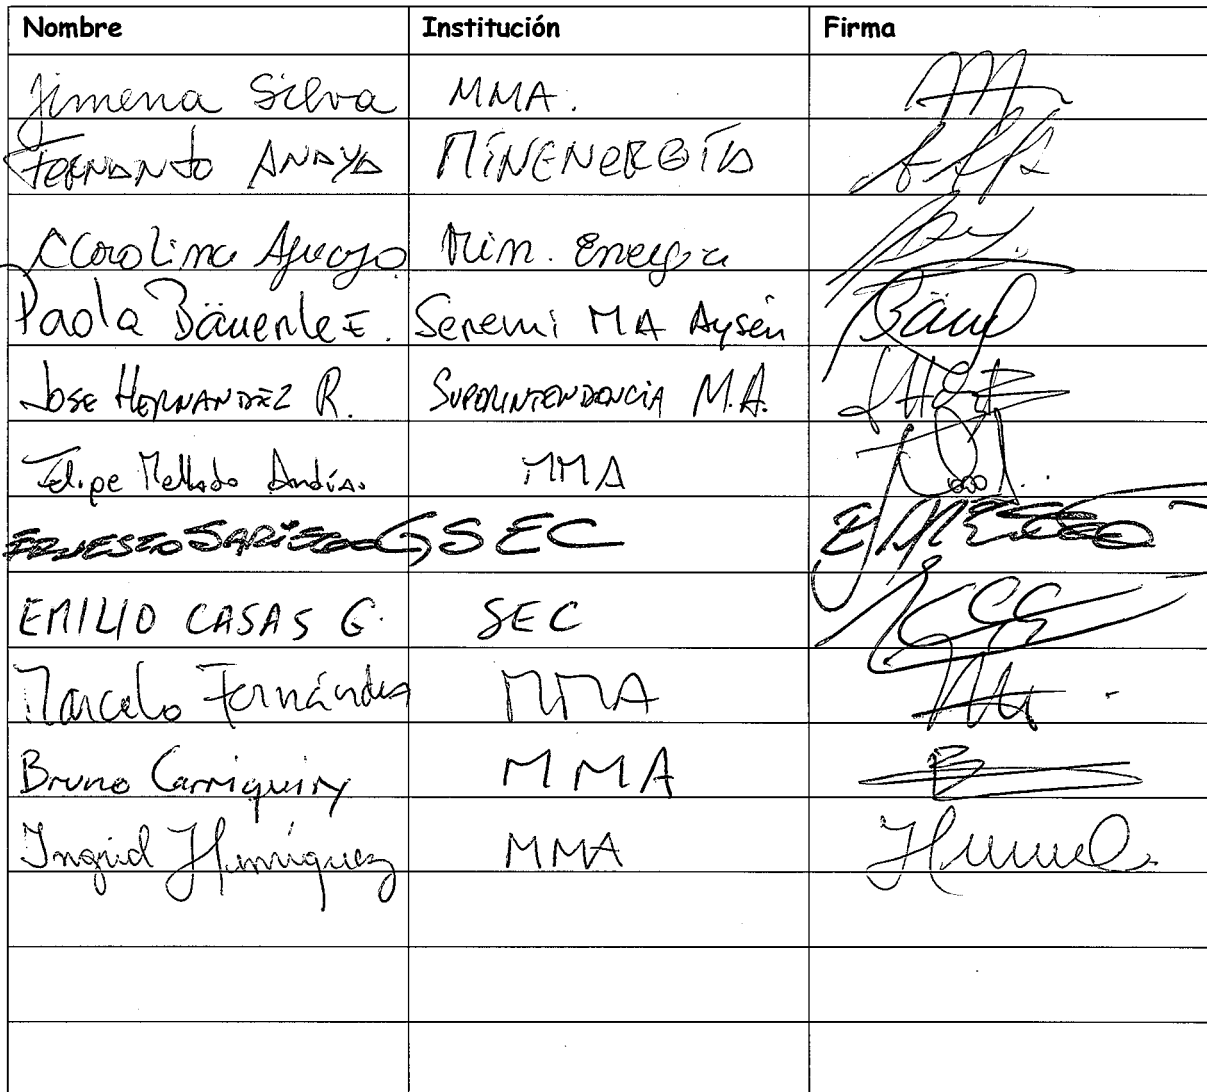 Nombre Institución Firma
Jimena Silva MMA.
FERNANDO ANAYA MINENERGÍA
Carolina Min. Energia
Paola Bäuerle E. Seremi MA Aysén
JOSE HERNANDEZ R. SUPERINTENDENCIA M.A.
Felipe Mellado Andías. MMA
ERNESTO SARIEGO G SEC
EMILIO CASAS G. SEC
Marcelo Fernández MMA
Bruno Carriquiry MMA
Ingrid Henríquez MMA